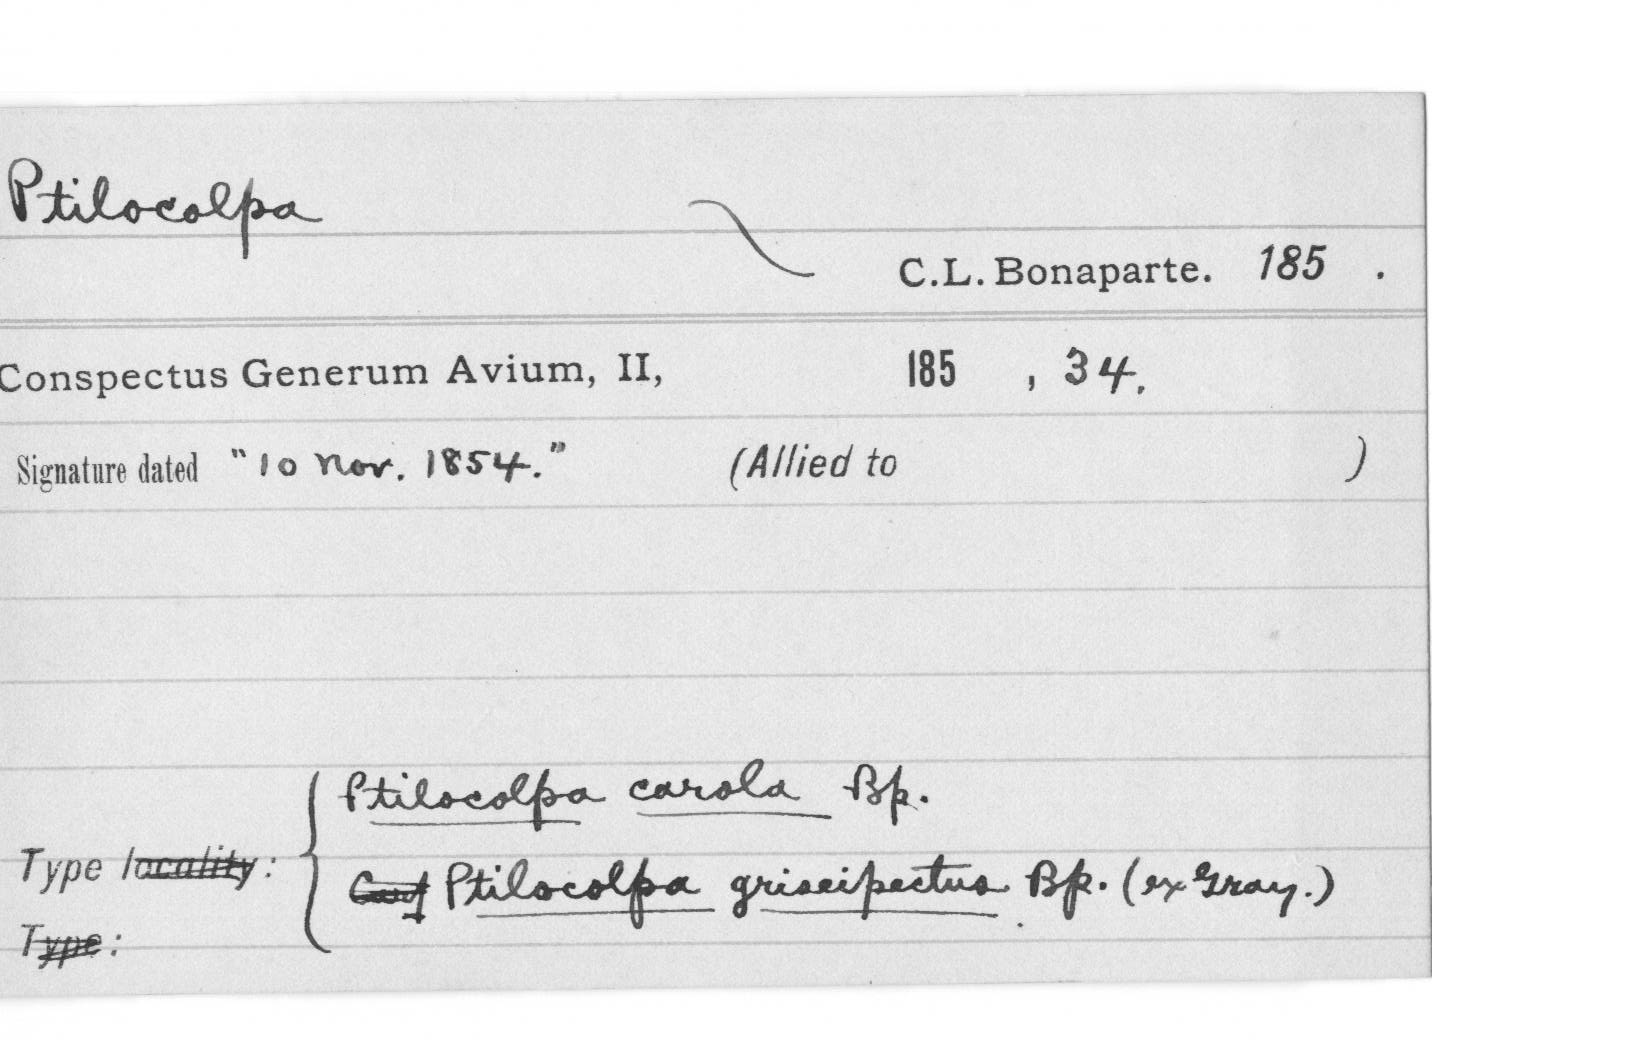 Ptilocolpa
C.L. Bonaparte. 185 .
Conspectus Generum Avium, II, 185 , 34.
Signature dated "10 Nov. 1854." (Allied to )
Ptilocolpa carola Bp.
Type locality:
Ptilocolpa griseipectus Bp. (ex Gray.)
Type: